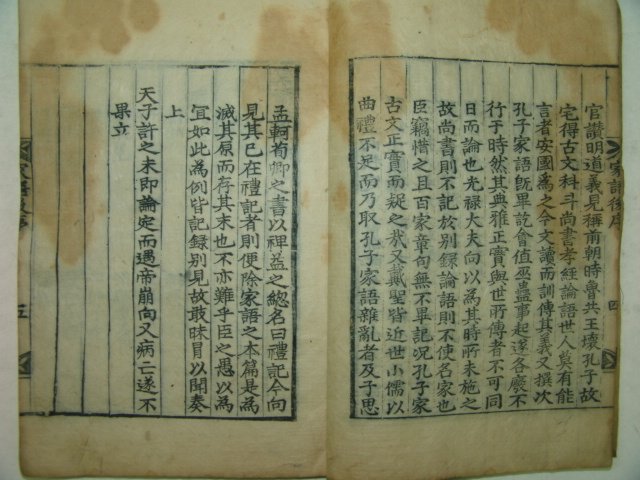 家語後序 四
官讃明道義見稱前朝時魯共王壞孔子故
宅得古文科斗尚書孝經論語世人莫有能
言者安國爲之今文讀而訓傳其義又撰次
孔子家語旣畢訖會值巫蠱事起遂各廢不
行于時然其典雅正實與世所傳者不可同
日而論也光祿大夫向以爲其時所未施之
故尚書則不記於別録論語則不使名家也
臣竊惜之且百家章句無不畢記況孔子家
古文正實而疑之哉又戴聖皆近世小儒以
曲禮不足而乃取孔子家語雜亂者及子思
孟軻荀卿之書以裨益之緫名曰禮記今向
見其已在禮記者則便除家語之本篇是爲
滅其原而存其末也不亦難乎臣之愚以爲
冝如此爲例皆記録別見故敢昧冒以聞奏
上
天子許之未即論定而遇帝崩向又病亡遂不
果立
五